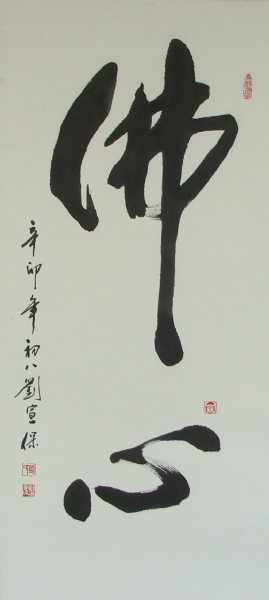 佛心
辛卯年初八劉宣保